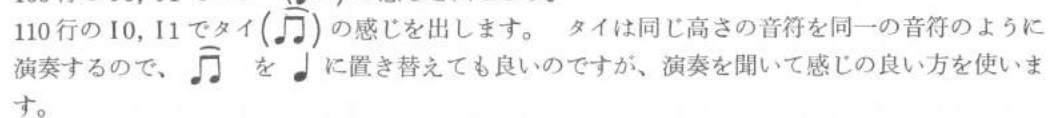 110行のI0, I1でタイ(♫)の感じを出します。 タイは同じ高さの音符を同一の音符のように
演奏するので、 ♫ を ♩ に置き替えても良いのですが、演奏を聞いて感じの良い方を使いま
す。